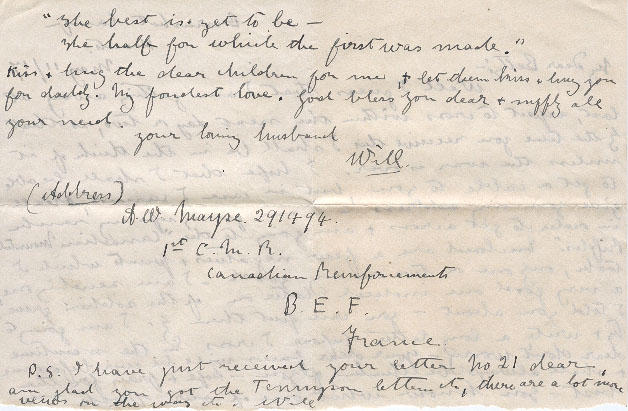 "The best is yet to be –
The half for which the first was made."
Kiss & hug the dear children for me, & let them kiss & hug you
for daddy. My fondest love. God bless you dear & supply all
your need.
your loving husband
Will.
(Address)
A.W. Mayse 291494.
1st C. M. R.
Canadian Reinforcements
B E. F.
France.
P.S. I have just received your letter No 21 dear,
am glad you got the Tennyson letter etc, there are a lot more
on the way etc. Will